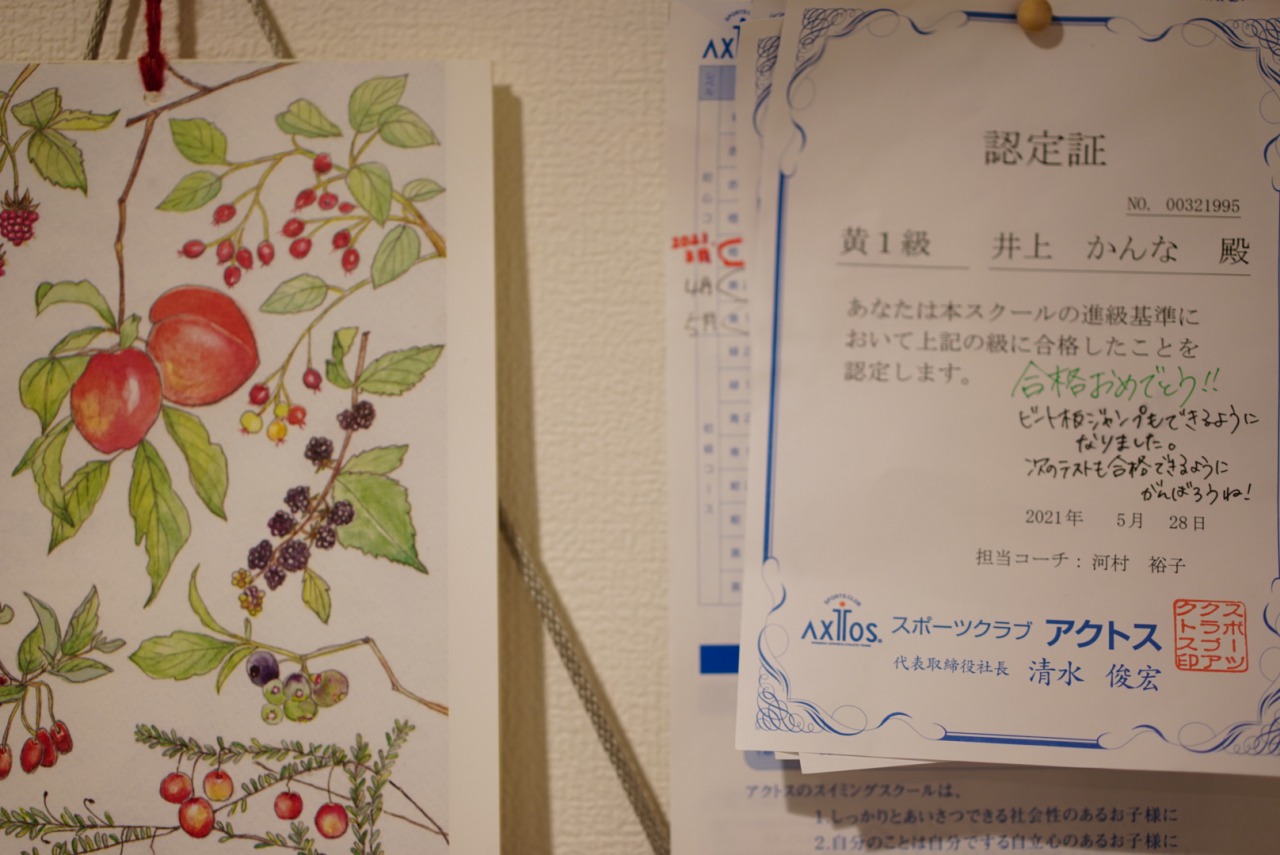 認定証
NO. 00321995
黄1級 井上 かんな 殿
あなたは本スクールの進級基準に
おいて上記の級に合格したことを
認定します。
合格おめでとう!!
ビート板ジャンプもできるように
なりました。
次のテストも合格できるように
がんばろうね!
2021年 5月 28日
担当コーチ: 河村 裕子
SPORTS CLUB
AXTOS. スポーツクラブ アクトス
代表取締役社長 清水 俊宏
スポーツ
クラブア
クトス印
アクトスのスイミングスクールは、
1.しっかりとあいさつできる社会性のあるお子様に
2.自分のことは自分でする自立心のあるお子様に
AX
2021
4月
5月